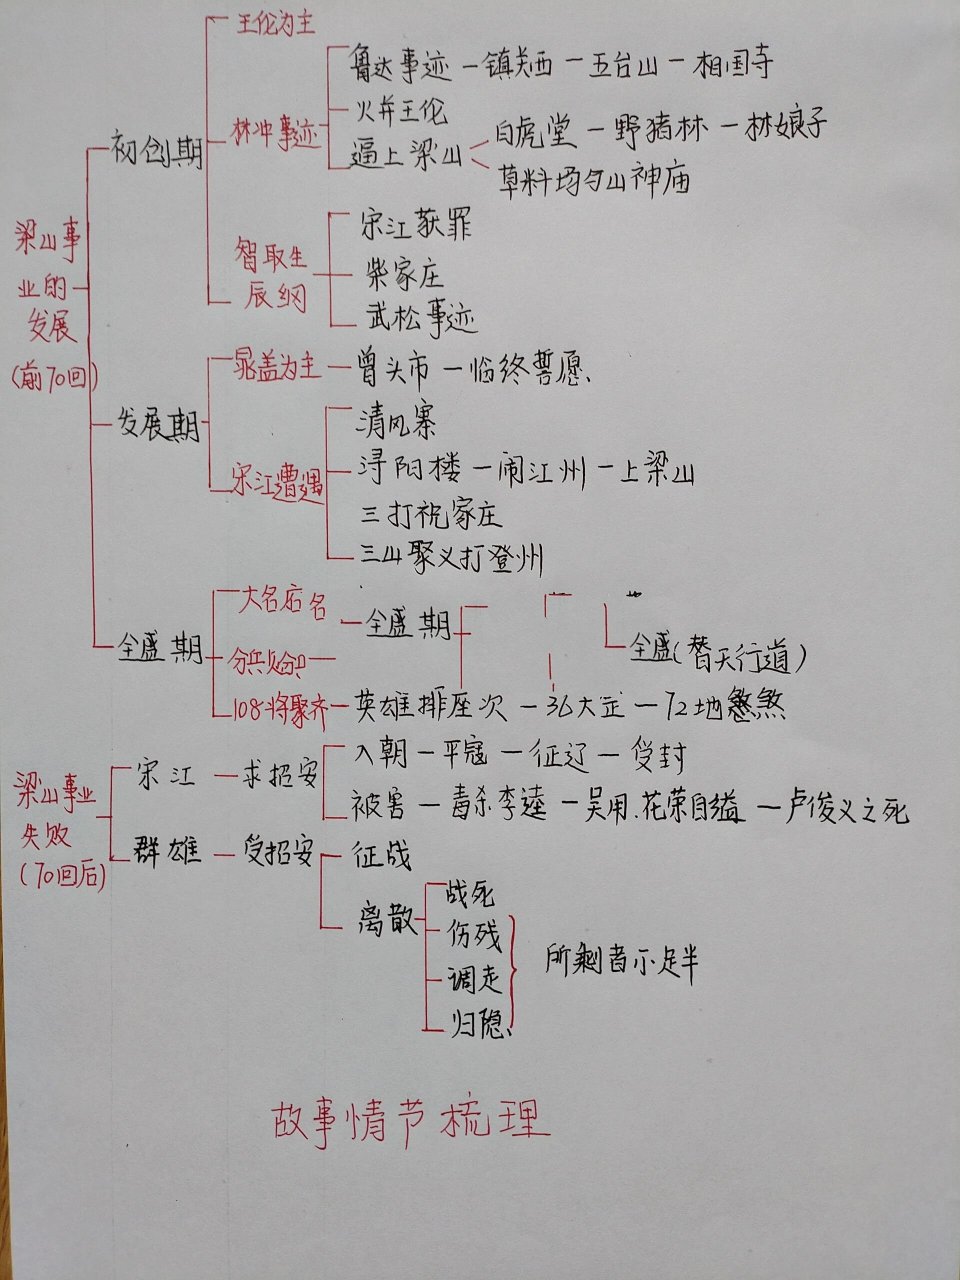 王伦为主
鲁达事迹一镇关西一五台山一相国寺
火并王伦
林冲事迹
白虎堂一野猪林一林娘子
逼上梁山
草料场与山神庙
初创期
宋江获罪
智取生
辰纲
柴家庄
武松事迹
梁山事
业的
发展
(前70回)
晁盖为主一曾头市一临终誓愿
发展期
清风寨
宋江遭遇
浔阳楼一闹江州一上梁山
三打祝家庄
三山聚义打登州
大名府
全盛期
全盛期
全盛(替天行道)
108将聚齐一英雄排座次一36大一72地煞
梁山事业
失败
(70回后)
宋江一求招安
入朝一平寇一征辽一受封
被害一毒杀李逵一吴用.花荣自缢一卢俊义之死
群雄一受招安
征战
离散
战死
伤残
调走
归隐
所剩者不足半
故事情节梳理